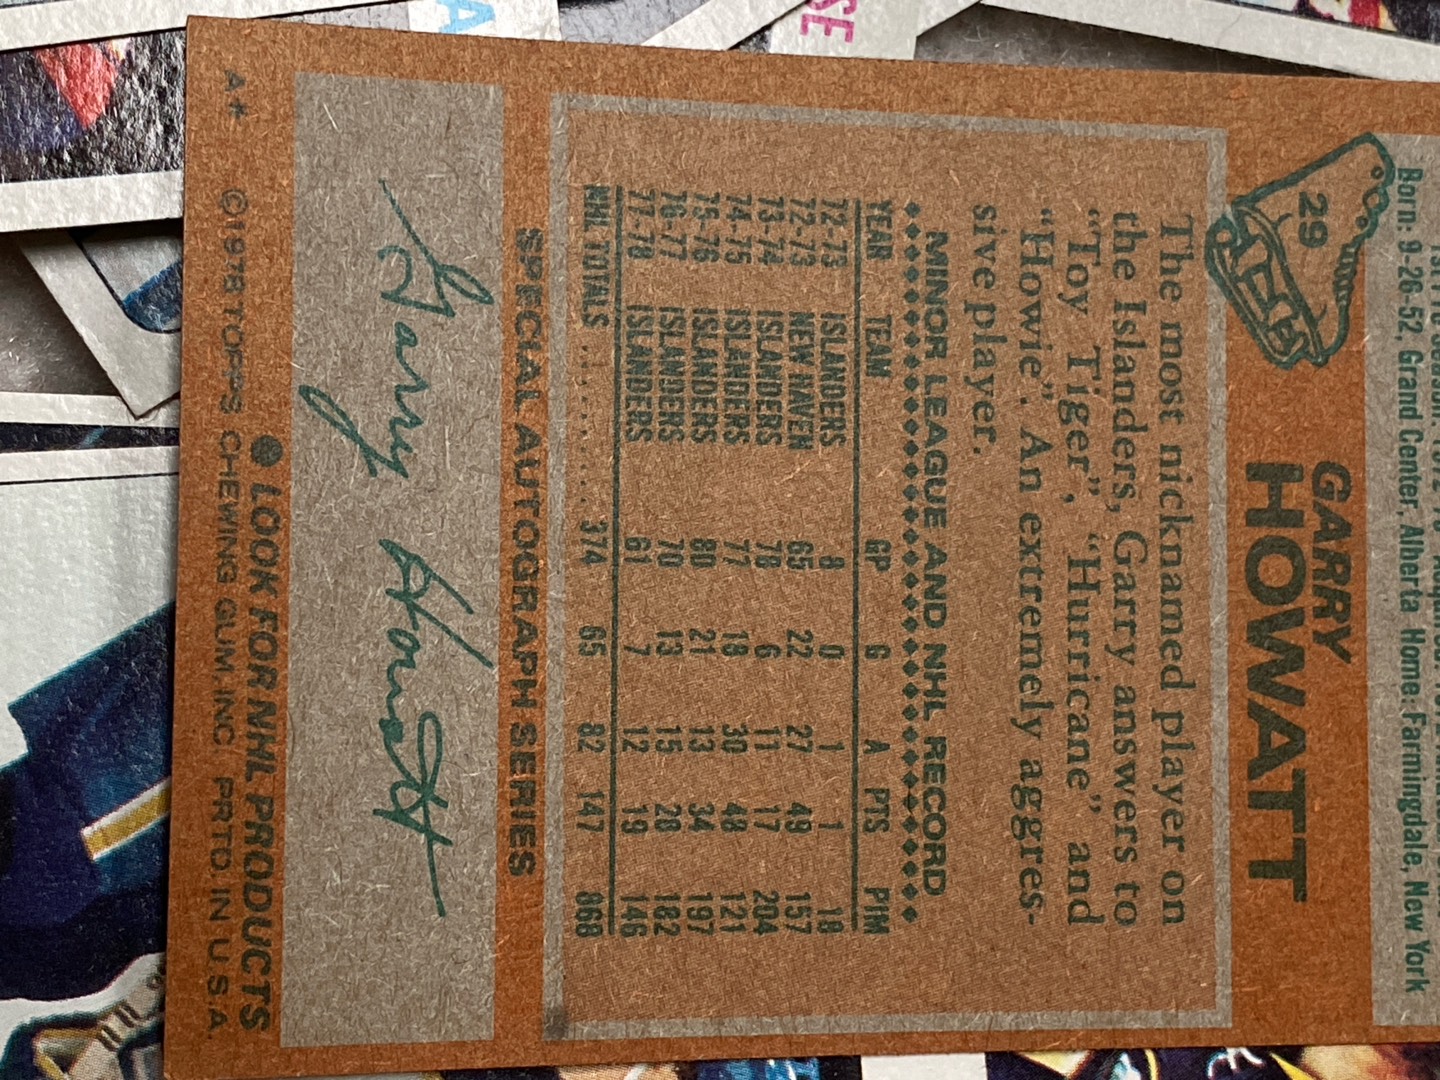 Born: 9-26-52, Grand Center, Alberta Home: Farmingdale, New York
29
GARRY
HOWATT
The most nicknamed player on
the Islanders, Garry answers to
“Toy Tiger”, “Hurricane” and
“Howie”. An extremely aggres-
sive player.
MINOR LEAGUE AND NHL RECORD
YEAR TEAM GP G A PTS PIM
72-73 ISLANDERS 8 0 1 1 18
72-73 NEW HAVEN 65 22 27 49 157
73-74 ISLANDERS 78 6 11 17 204
74-75 ISLANDERS 77 18 30 48 121
75-76 ISLANDERS 80 21 13 34 197
76-77 ISLANDERS 70 13 15 28 182
77-78 ISLANDERS 61 7 12 19 146
NHL TOTALS . . . . . . . . . 374 65 82 147 868
SPECIAL AUTOGRAPH SERIES
Garry Howatt
LOOK FOR NHL PRODUCTS
A* © 1978 TOPPS CHEWING GUM, INC. PRTD. IN U.S.A.
A
SE